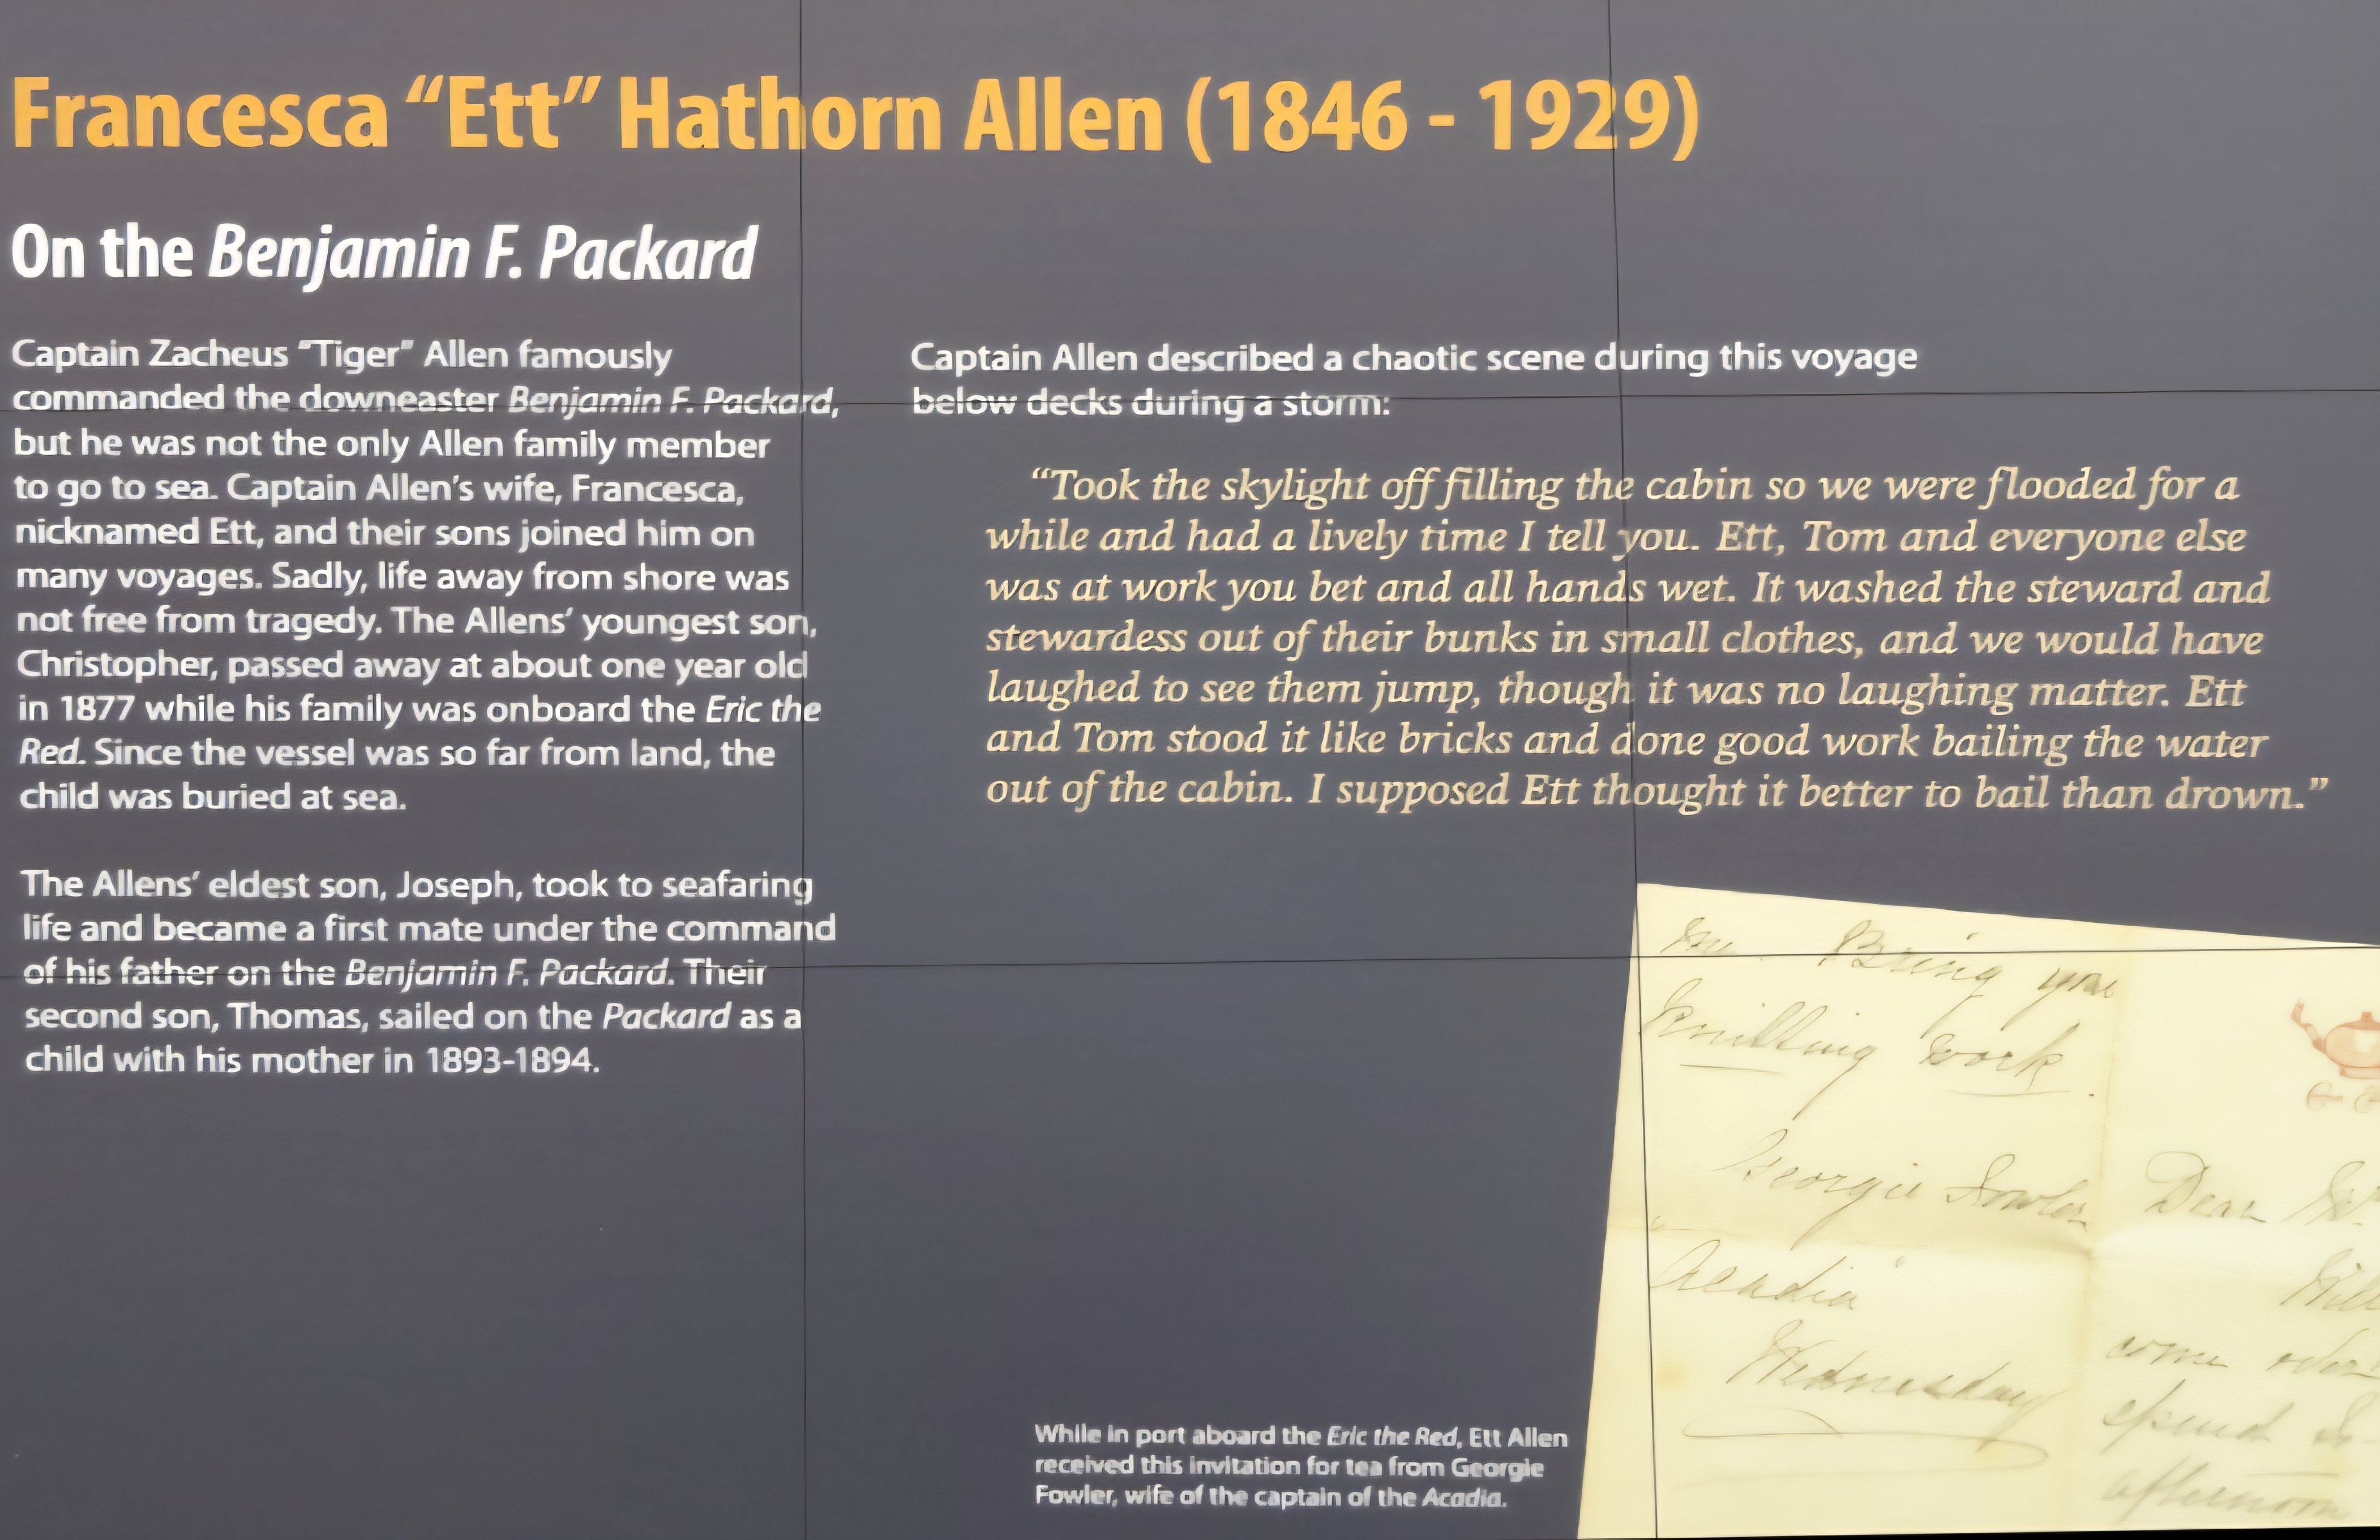 Francesca “Ett” Hathorn Allen (1846 - 1929)
On the Benjamin F. Packard
Captain Zacheus “Tiger” Allen famously
commanded the downeaster Benjamin F. Packard,
but he was not the only Allen family member
to go to sea. Captain Allen’s wife, Francesca,
nicknamed Ett, and their sons joined him on
many voyages. Sadly, life away from shore was
not free from tragedy. The Allens’ youngest son,
Christopher, passed away at about one year old
in 1877 while his family was onboard the Eric the
Red. Since the vessel was so far from land, the
child was buried at sea.
The Allens’ eldest son, Joseph, took to seafaring
life and became a first mate under the command
of his father on the Benjamin F. Packard. Their
second son, Thomas, sailed on the Packard as a
child with his mother in 1893-1894.
Captain Allen described a chaotic scene during this voyage
below decks during a storm:
“Took the skylight off filling the cabin so we were flooded for a
while and had a lively time I tell you. Ett, Tom and everyone else
was at work you bet and all hands wet. It washed the steward and
stewardess out of their bunks in small clothes, and we would have
laughed to see them jump, though it was no laughing matter. Ett
and Tom stood it like bricks and done good work bailing the water
out of the cabin. I supposed Ett thought it better to bail than drown.”
While in port aboard the Eric the Red, Ett Allen
received this invitation for tea from Georgie
Fowler, wife of the captain of the Acadia.
Bring your
Knitting work.
Georgie Fowler
Acadia
Wednesday
Dear
come
spend
afternoon